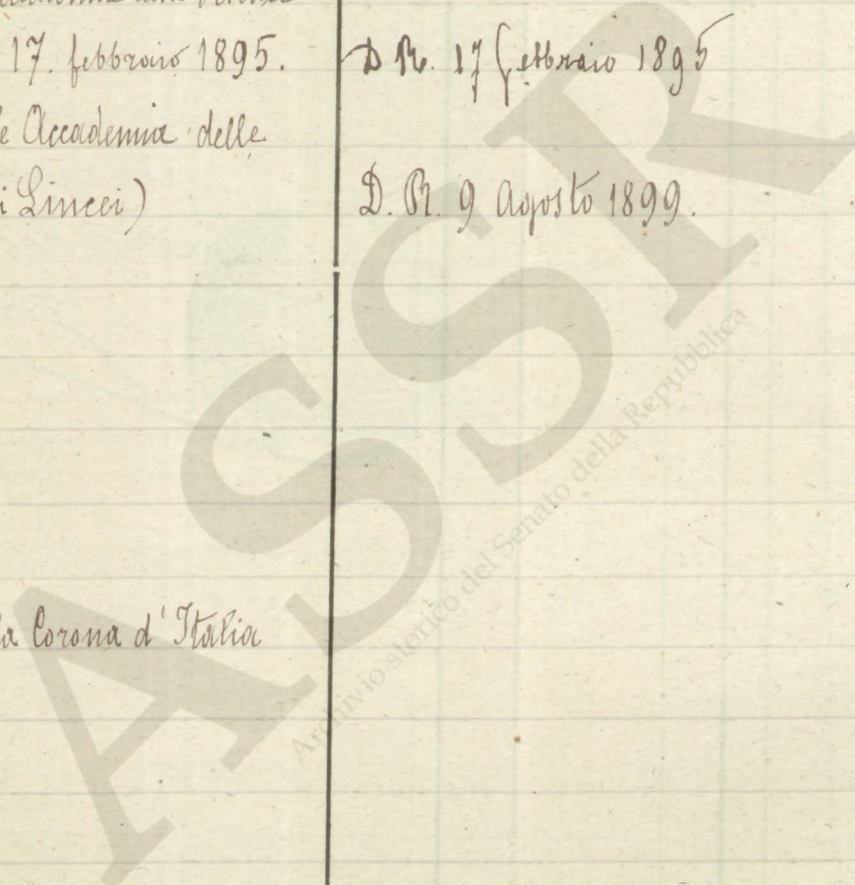 17. febbraio 1895.
e Accademia delle
i Lincei)
la Corona d'Italia
D R. 17 febbraio 1895
D. R. 9 Agosto 1899.
ASSR
Archivio storico del Senato della Repubblica